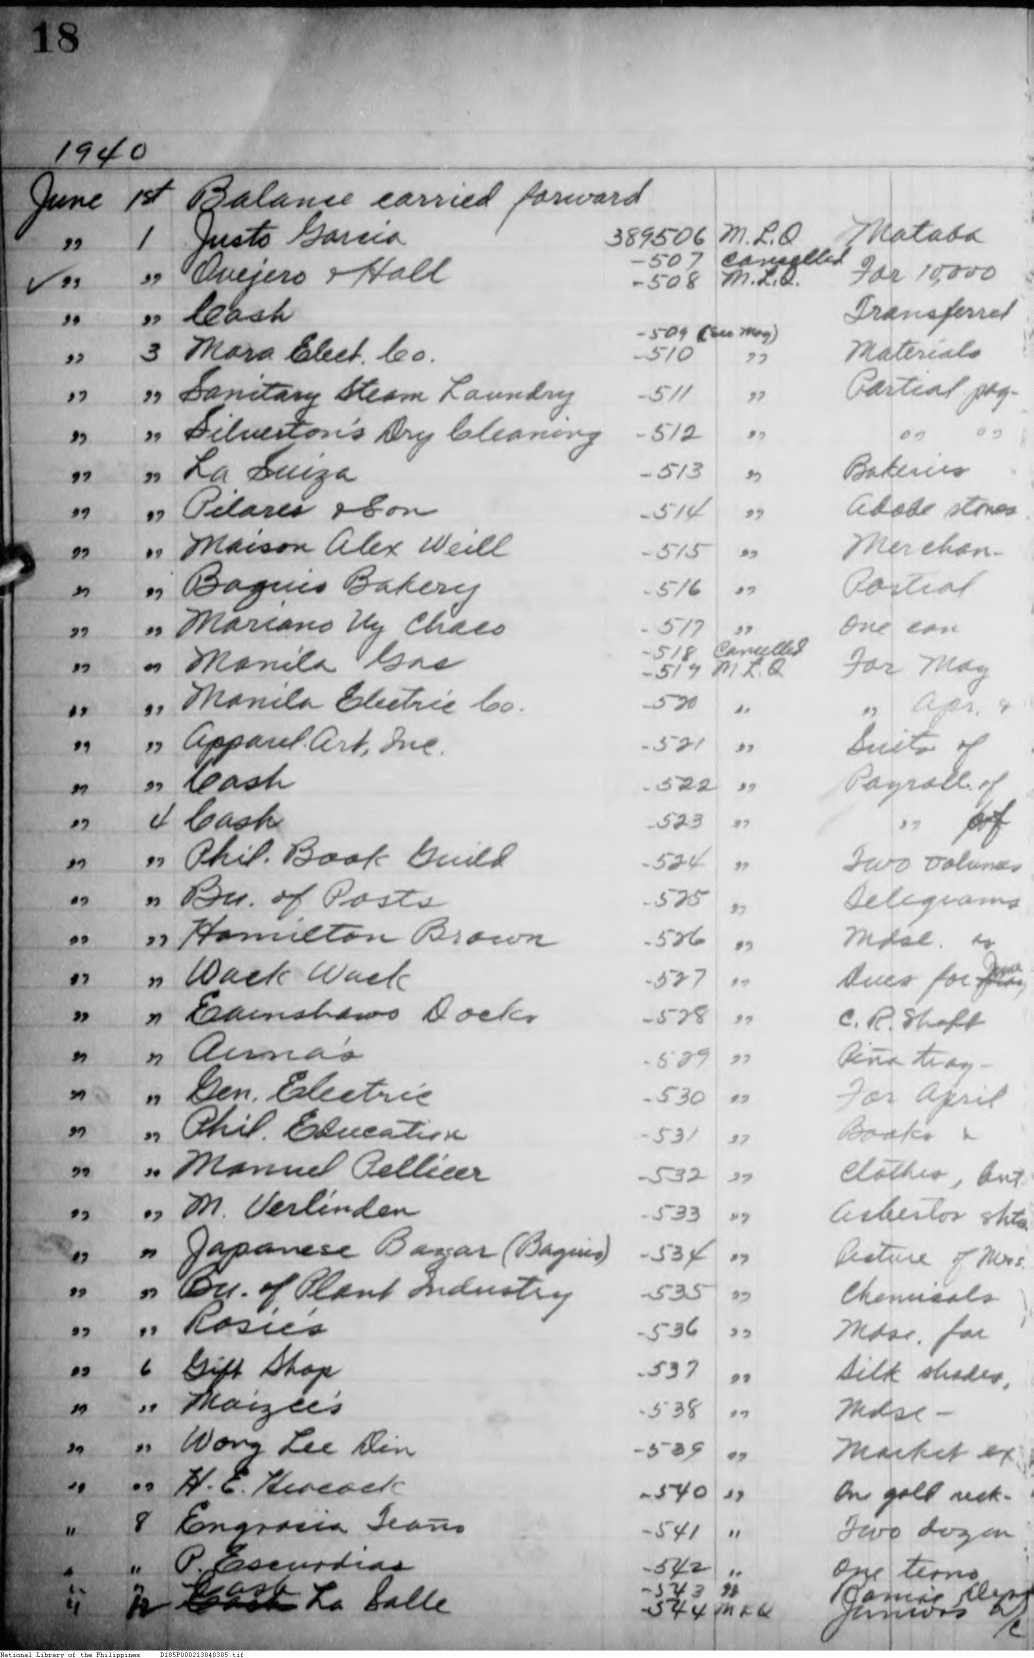 18
1940
June 1st Balance carried forward
" 1 Justo Garcia 389506 M.L.Q Mataba
-507 Cancelled
✓ " " Ovejero & Hall -508 M.L.Q. For 10,000
" " Cash Transferred
-509 (See May)
" 3 Mora Elect. Co. -510 " Materials
" " Sanitary Steam Laundry -511 " Partial pay-
" " Silverton's Dry Cleaning -512 " " "
" " La Suiza -513 " Bakeries
" " Pilares & Son -514 " Adobe stones
" " Maison Alex Weill -515 " Merchan-
" " Baguio Bakery -516 " Partial
" " Mariano Uy Chaco -517 " One can
-518 Cancelled
" " Manila Gas -519 M.L.Q For May
" " Manila Electric Co. -520 " " Apr. &
" " Apparel Art, Inc. -521 " Suits of
" " Cash -522 " Payroll of
" 4 Cash -523 " " of
" " Phil. Book Guild -524 " Two volumes
" " Bu. of Posts -525 " Telegrams
" " Hamilton Brown -526 " Mdse.
" " Wack Wack -527 " Dues for June
" " Earnshaws Docks -528 " C.R. Shaft
" " Aurna's -529 " Piña tray-
" " Gen. Electric -530 " For April
" " Phil. Education -531 " Books &
" " Manuel Pellicer -532 " Clothes, but
" " M. Verlinden -533 " Asbestos shts
" " Japanese Bazar (Baguio) -534 " Picture of Mrs.
" " Bu. of Plant Industry -535 " Chemicals
" " Rosie's -536 " Mdse. for
" 6 Gift Shop -537 " Silk shades,
" " Maizie's -538 " Mdse-
" " Wong Lee Din -539 " Market ex
" " H. E. Heacock -540 " On gold neck-
" 8 Engracia Teaño -541 " Two dozen
" " P. Escurdias -542 " One terno
" " Cash -543 "
" " La Salle -544 MLQ Juniors
National Library of the Philippines D185P000213840305.tif